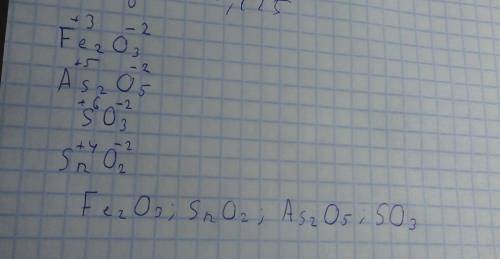 +3 -2
Fe2O3
+5 -2
As2O5
+6 -2
SO3
+4 -2
SnO2
Fe2O3; SnO2; As2O5; SO3